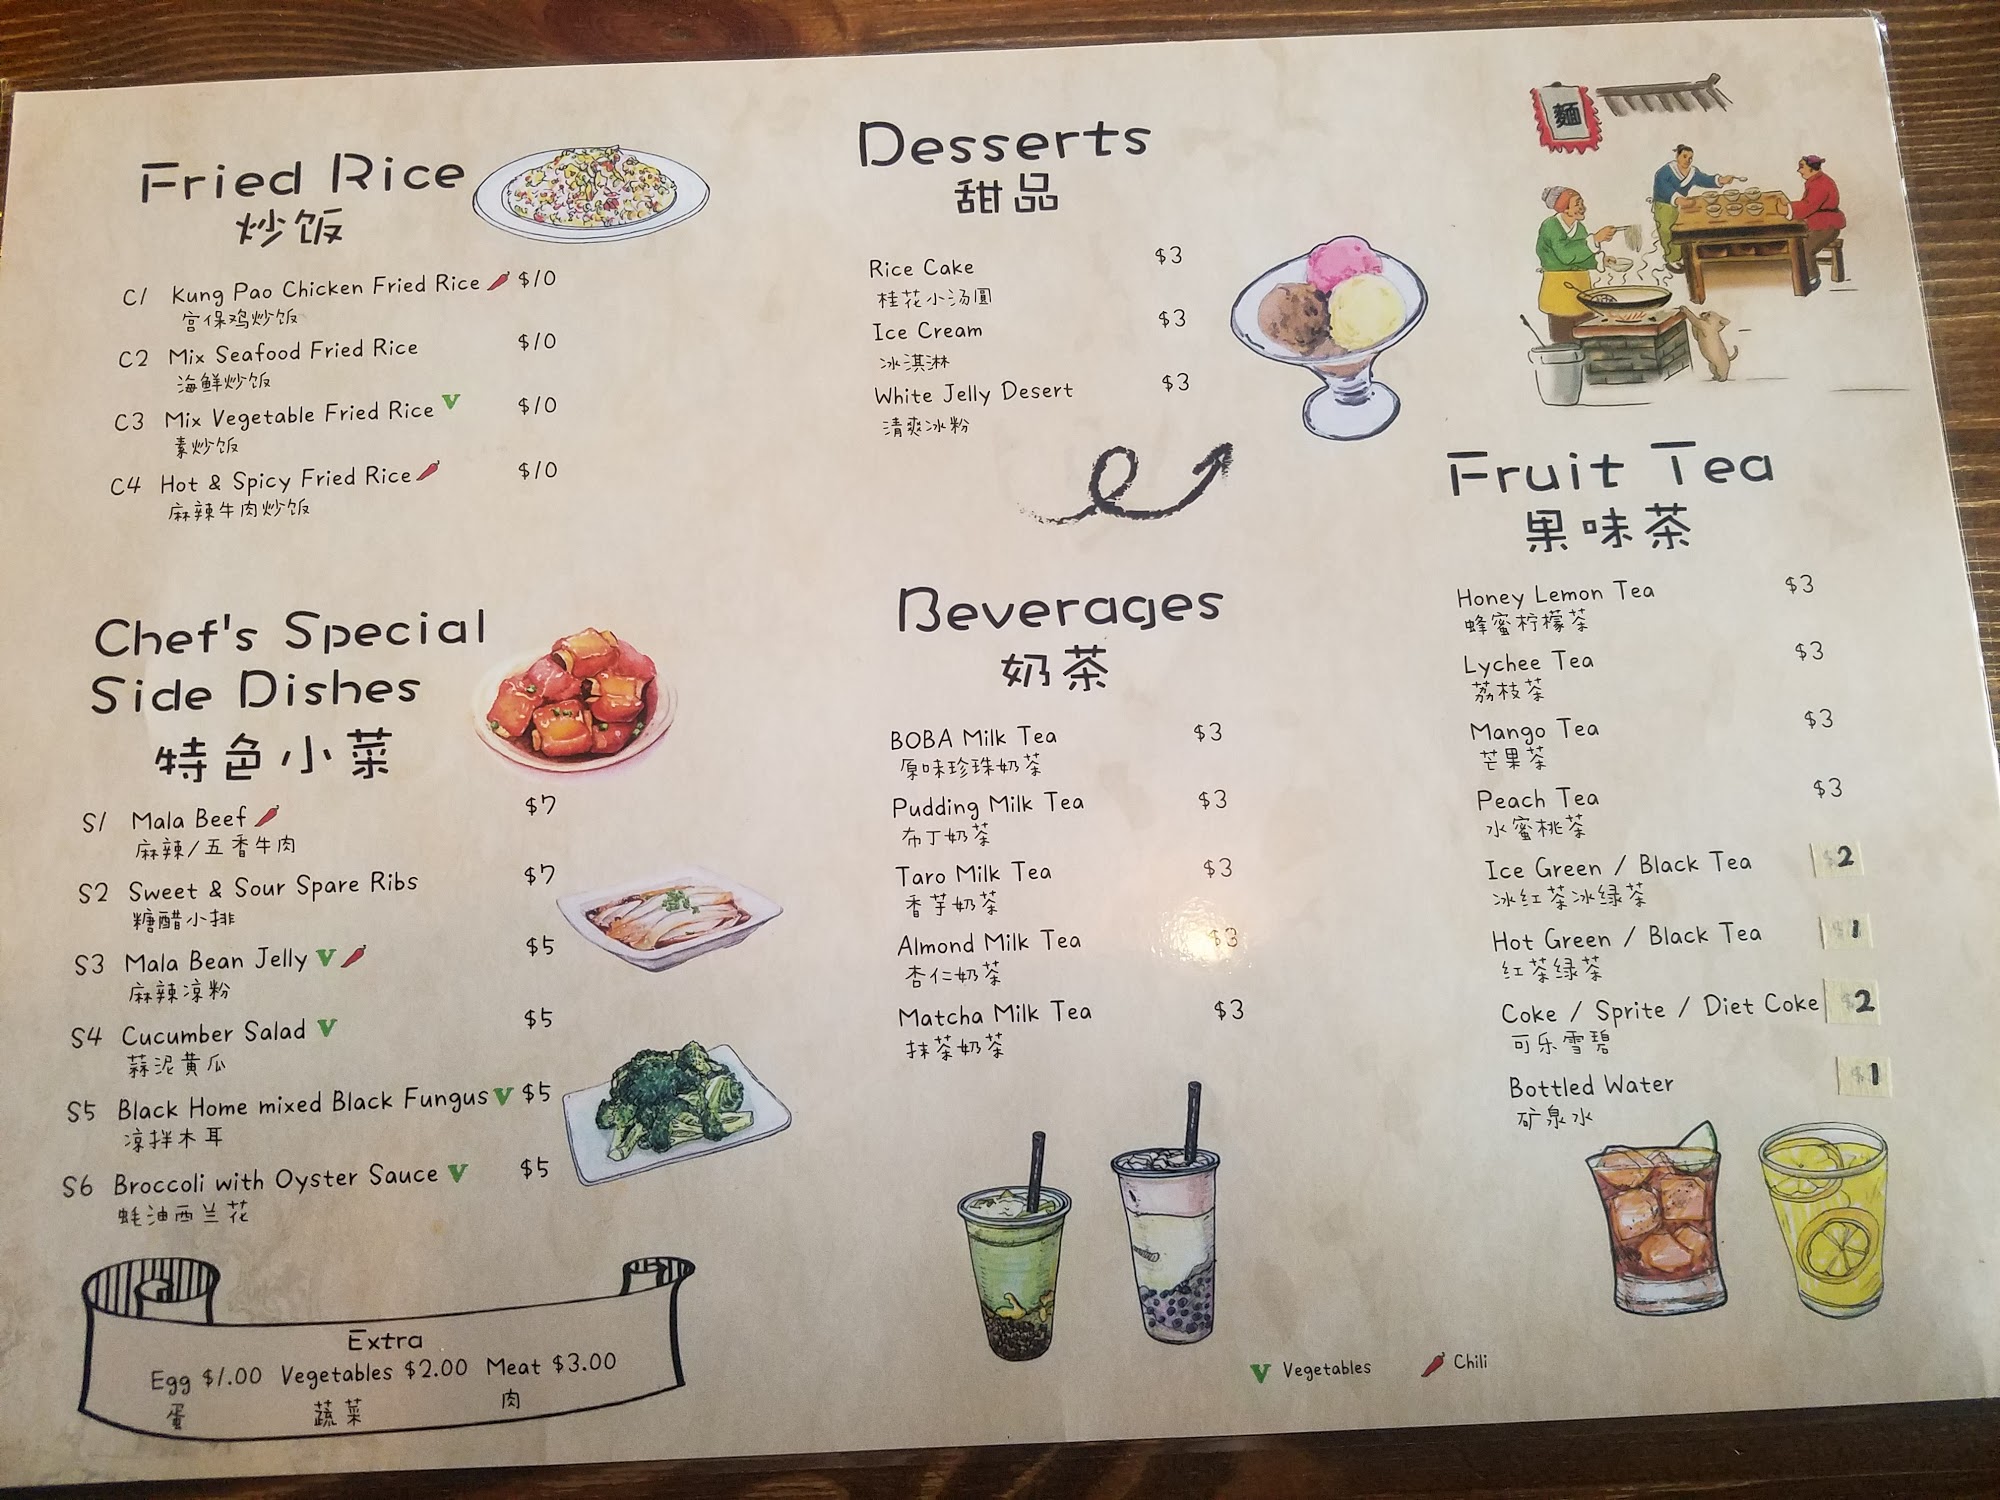 Fried Rice
炒饭
C1 Kung Pao Chicken Fried Rice $10
宫保鸡炒饭
C2 Mix Seafood Fried Rice $10
海鲜炒饭
C3 Mix Vegetable Fried Rice V $10
素炒饭
C4 Hot & Spicy Fried Rice $10
麻辣牛肉炒饭
Chef's Special
Side Dishes
特色小菜
S1 Mala Beef $7
麻辣/五香牛肉
S2 Sweet & Sour Spare Ribs $7
糖醋小排
S3 Mala Bean Jelly V $5
麻辣凉粉
S4 Cucumber Salad V $5
蒜泥黄瓜
S5 Black Home mixed Black Fungus V $5
凉拌木耳
S6 Broccoli with Oyster Sauce V $5
蚝油西兰花
Extra
Egg $1.00 Vegetables $2.00 Meat $3.00
蛋 蔬菜 肉
Desserts
甜品
Rice Cake $3
桂花小汤圆
Ice Cream $3
冰淇淋
White Jelly Desert $3
清爽冰粉
Beverages
奶茶
BOBA Milk Tea $3
原味珍珠奶茶
Pudding Milk Tea $3
布丁奶茶
Taro Milk Tea $3
香芋奶茶
Almond Milk Tea $3
杏仁奶茶
Matcha Milk Tea $3
抹茶奶茶
麵
Fruit Tea
果味茶
Honey Lemon Tea $3
蜂蜜柠檬茶
Lychee Tea $3
荔枝茶
Mango Tea $3
芒果茶
Peach Tea $3
水蜜桃茶
Ice Green / Black Tea $2
冰红茶冰绿茶
Hot Green / Black Tea $1
红茶绿茶
Coke / Sprite / Diet Coke $2
可乐雪碧
Bottled Water $1
矿泉水
V Vegetables Chili